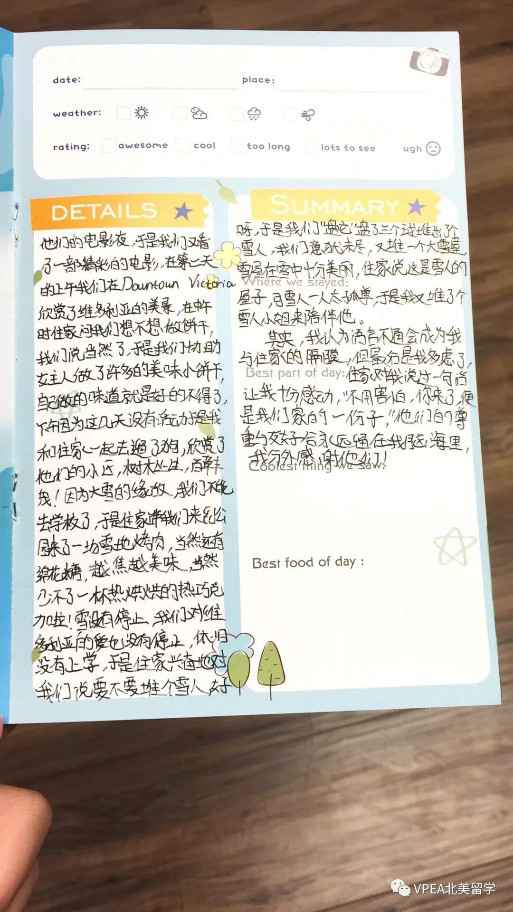 date:
place:
weather:
rating:
awesome
cool
too long
lots to see
ugh
DETAILS
他们的电影夜，于是我们又看
了一部精彩的电影，在第二天
的上午我们在Downtown Victoria
欣赏了维多利亚的美景，在中午
时住家问我们想不想做饼干，
我们说当然了，于是我们协助
女主人做了许多的美味小饼干，
自己做的味道就是好的不得了，
下午因为这几天没有活动于是我
和住家一起去遛了狗，欣赏了
他们的小区，树木丛生，
我！因为大雪的缘故，我们不能
去学校了，于是住家带我们来到公
园来了一场雪地烤肉，当然还有
棉花糖，越焦越美味，当然
少不了一杯热烘烘的热巧克
力啦！雪没有停止，我们对维
多利亚的爱也没有停止，依旧
没有上学，于是住家兴奋地对
我们说要不要堆个雪人，好
SUMMARY
呀，于是我们
雪人，我们意犹未尽，又堆一个大雪屋，
雪屋在雪中十分美丽，住家说这是雪人的
Where we stayed:
屋子，雪人一人太孤单，于是我又堆了个
雪人小姐来陪伴他。
其实，我认为语言不通会成为我
与住家的隔阂，但事实是我多虑了，
Best part of day:
住家对我说过一句话
让我十分感动，“不用害怕，你来了，便
是我们家的一份子，”他们的尊
重与友好会永远留在我脑海里，
Coolest thing we saw:
我分外感谢他们！
Best food of day :
VPEA北美留学